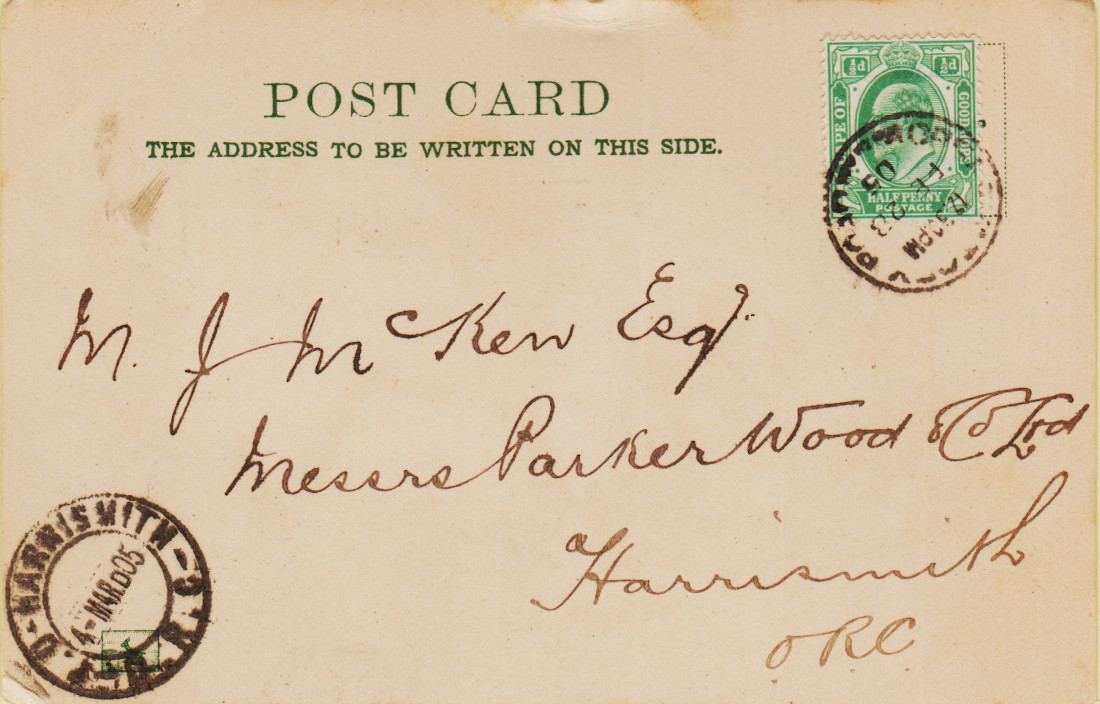 POST CARD
THE ADDRESS TO BE WRITTEN ON THIS SIDE.
½d ½d
OF GOOD
HALFPENNY
POSTAGE
05
PM
M. J McKen Esqr.
Messrs Parker Wood & Co Ltd
Harrismith
ORC
HARRISMITH
4-MAR 05
O.R.C.